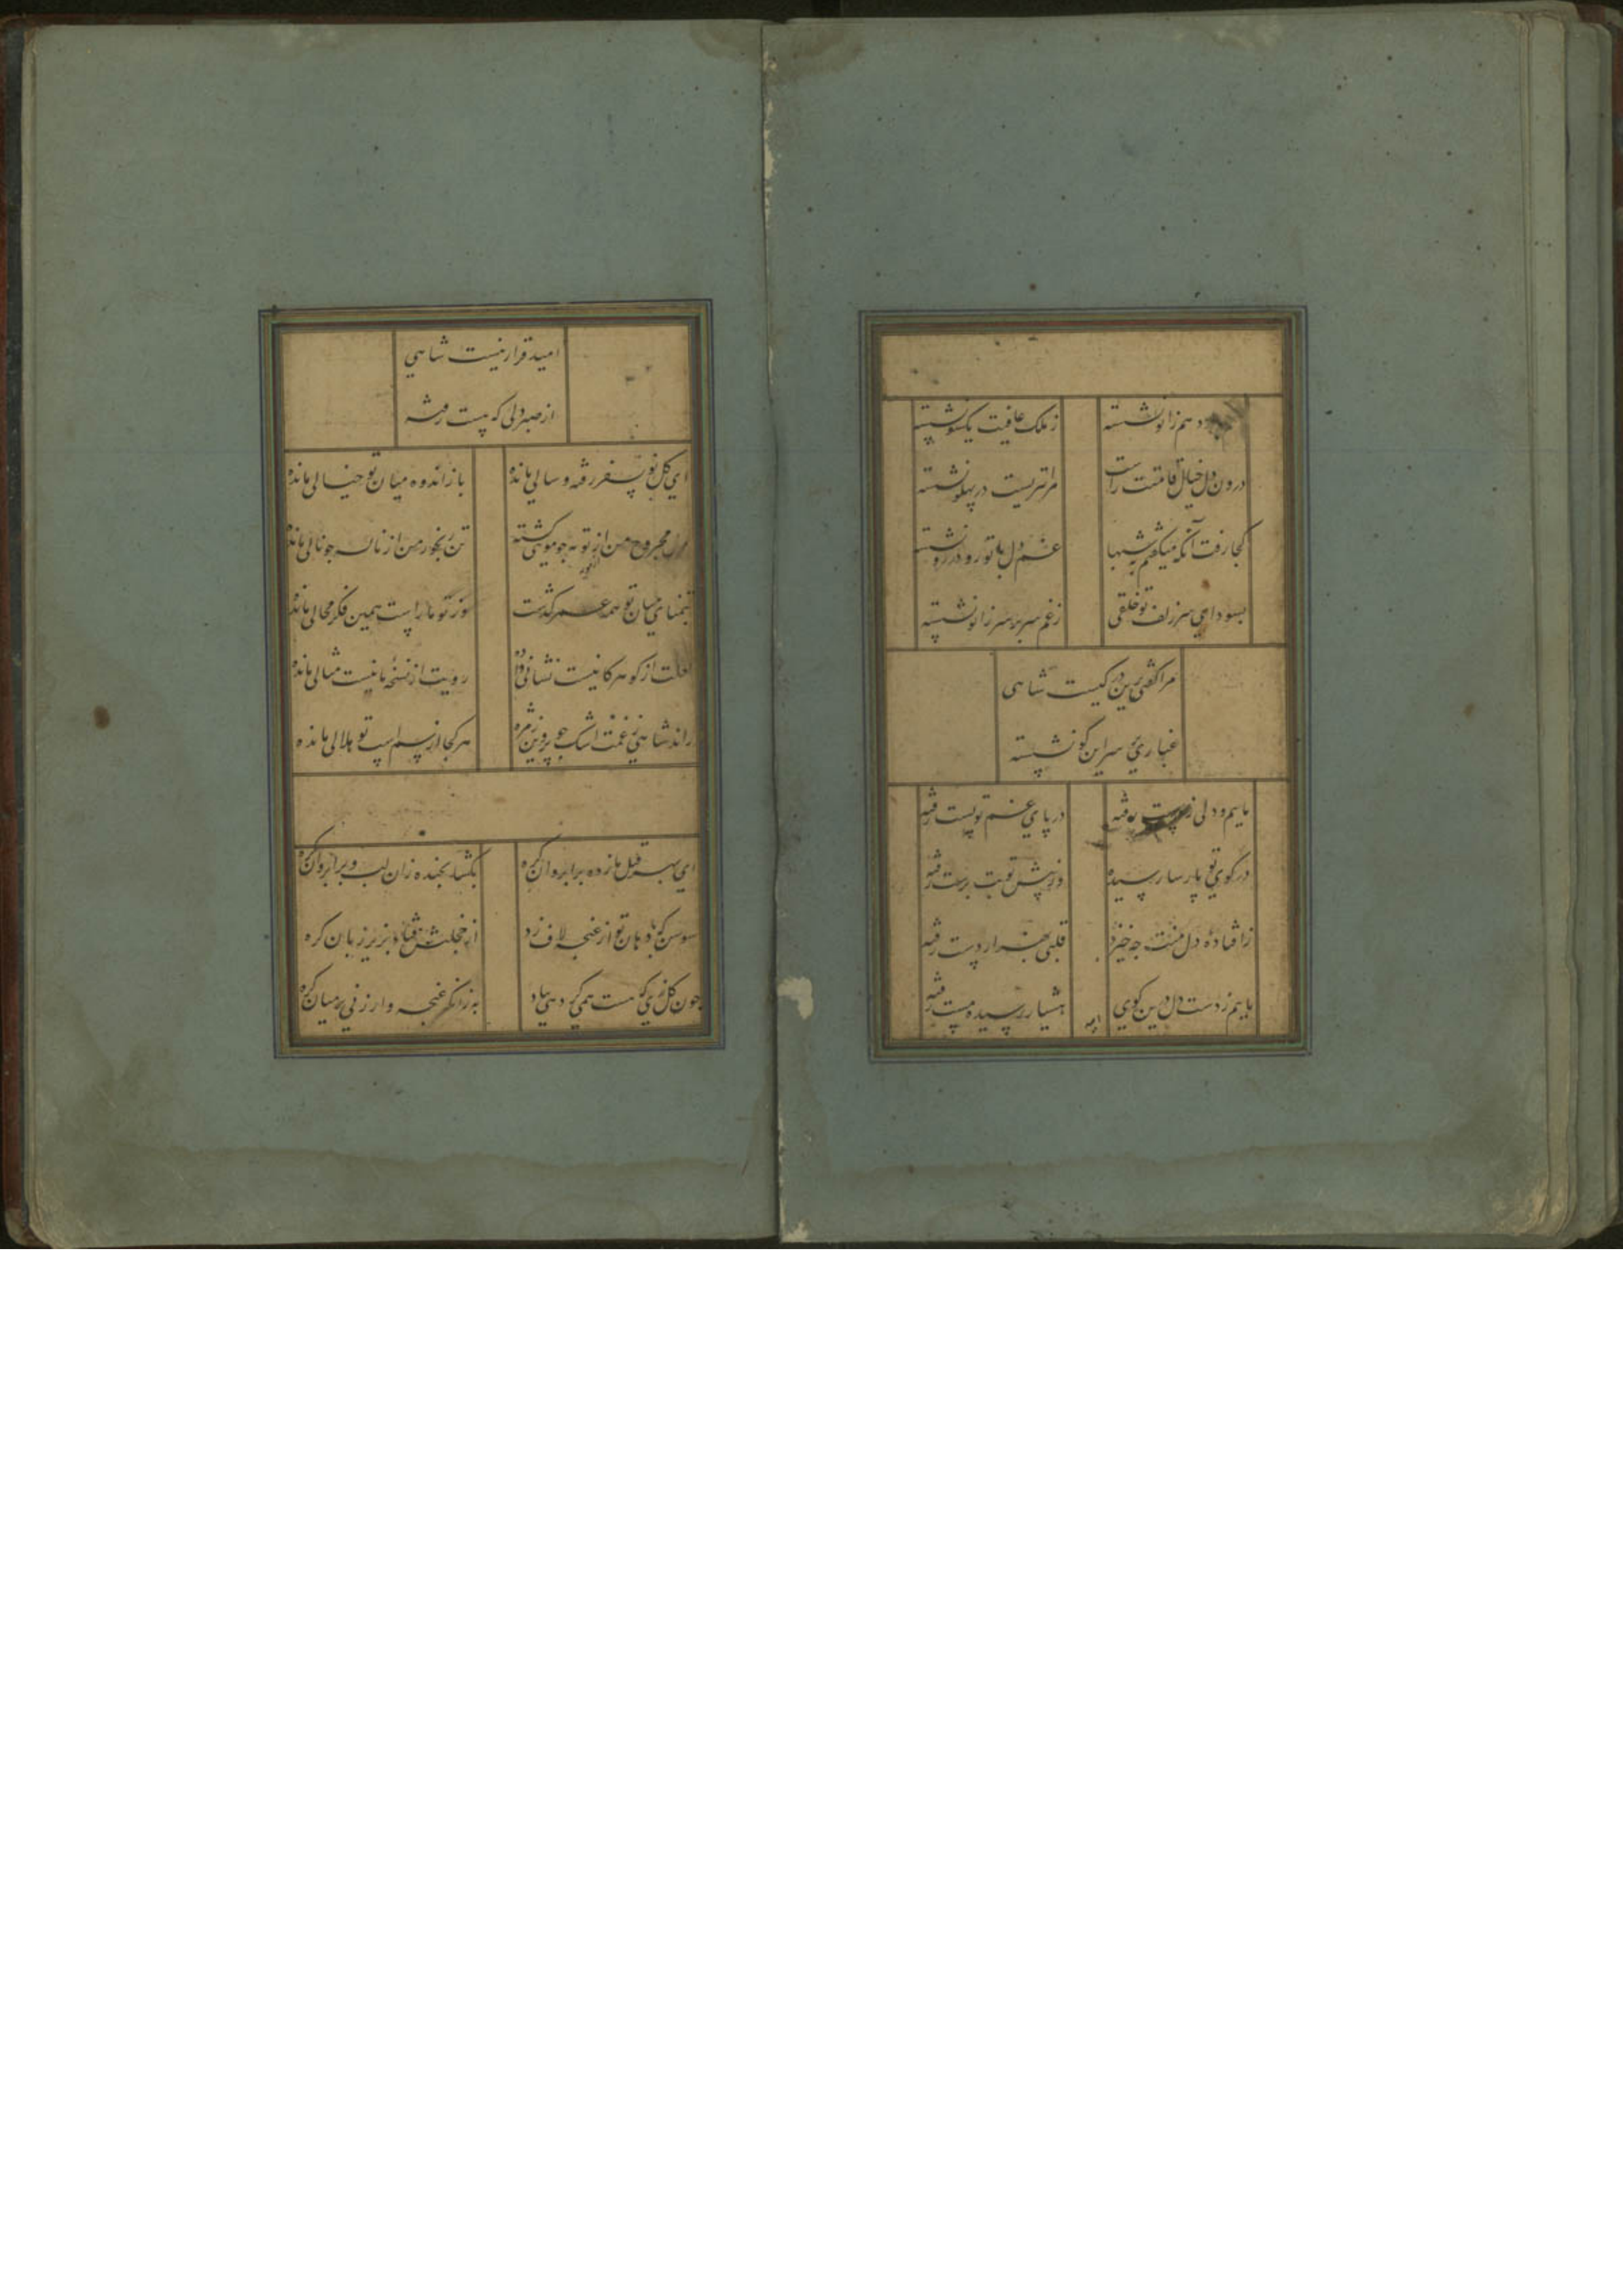 هم زانو نشسته
ز ملک عافیت یکسو نشسته
درون دل خیال قامتت راست
مرا تیریست در پهلو نشسته
کجا رفت آنکه میگفتم به شبها
غم دل با تو رو در رو نشسته
بسودای سر زلف تو خلقی
ز غم سر بر سر زانو نشسته
مرا گفتی برین در کیست شاهی
غباری بر سر این کو نشسته
ماییم و دلی ز دست رفته
در پای غم تو پست رفته
در کوی تو پارسا رسیده
وز پیش تو بت پرست رفته
ز افتاده دل منت چه خیزد
قلبی بهزار دست رفته
ماییم ز دست دل درین کوی
هشیار رسیده مست رفته
امید
امید قرار نیست شاهی
از صبر دلی که پست رفته
ای گل نو بسفر رفته و سالی مانده
باز اندوه میان تو خیالی مانده
مجروح من از تو چو مویی گشته
تن رنجور من از ناله چو نالی مانده
بتمنای میان تو همه عمر گذشت
تو ما را ست همین فکر محالی مانده
لعلت از گوهر کانیست نشانی داده
رویت از نسخه مانیست مثالی مانده
راند شاهی ز غمت اشک چو پروین ز مژه
هر کجا از سم اسپ تو هلالی مانده
ای بهر قتل ما زده بر ابروان گره
بگشا بخنده زان لب و بر ابروان گره
سوسن که با دهان تو از غنچه لاف زد
از خجلتش فتاد بزیر زبان گره
چون گل بری که مست همی گر دهی بباد
به زانکه غنچه وار زنی بر میان گره